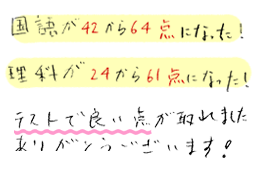 国語が42から64点になった!
理科が24から61点になった!
テストで良い点が取れました
ありがとうございます!